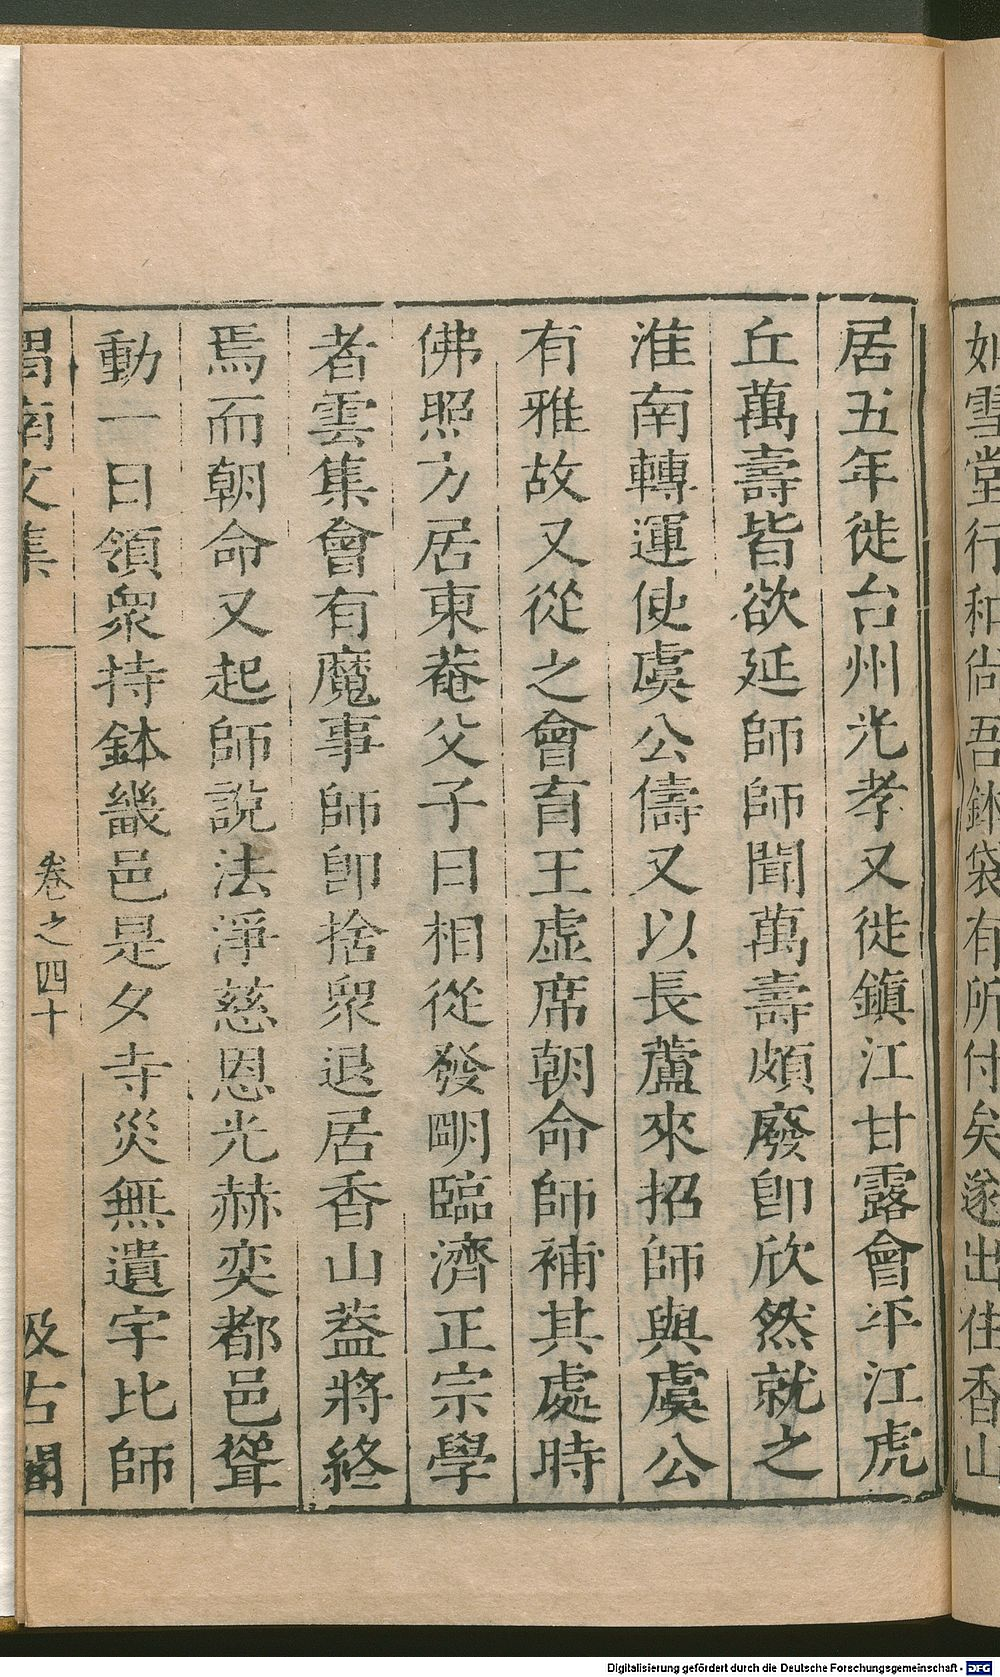 如雪堂行和尚吾鉢袋有所付矣遂出住香山
居五年徙台州光孝又徙鎮江甘露會平江虎
丘萬壽皆欲延師師聞萬壽頗廢卽欣然就之
淮南轉運使虞公儔又以長蘆來招師與虞公
有雅故又從之會育王虛席朝命師補其處時
佛照方居東菴父子日相從發明臨濟正宗學
者雲集會有魔事師卽捨衆退居香山葢將終
焉而朝命又起師說法淨慈恩光赫奕都邑聳
動一日領衆持鉢畿邑是夕寺災無遺宇比師
渭南文集 卷之四十 汲古閣
Digitalisierung gefördert durch die Deutsche Forschungsgemeinschaft - DFG